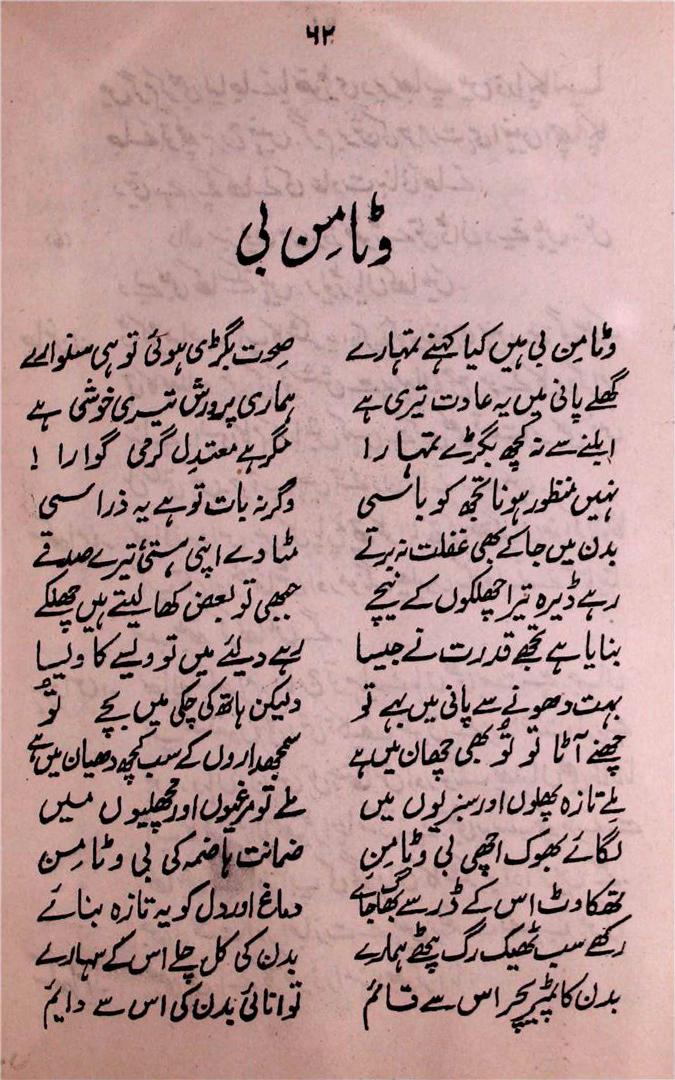 ۶۲
وٹامِن بی
وٹامِن بی ہیں کیا کہنے تمہارے صحت بگڑی ہوئی تو ہی سنوارے
گھلے پانی میں یہ عادت تیری ہے ہماری پرورش تیری خوشی ہے
ابلنے سے نہ کچھ بگڑے تمہارا مگر ہے معتدل گرمی گوارا !
نہیں منظور ہونا تجھ کو باسی وگرنہ بات تو ہے یہ ذرا سی
بدن میں جا کے بھی غفلت نہ برتے مٹا دے اپنی ہستیٔ تیرے صدقے
رہے ڈیرہ تیرا چھلکوں کے نیچے جبھی تو بعض کھا لیتے ہیں چھلکے
بنایا ہے تجھے قدرت نے جیسا رہے دلئے میں تو ویسے کا ویسا
بہت دھونے سے پانی میں بہے تو ولیکن ہاتھ کی چکی میں بچے تُو
چھنے آٹا تو تُو بھی چھان میں ہے سمجھداروں کے سب کچھ دھیان میں ہے
ملے تازہ پھلوں اور سبزیوں میں ملے تو مرغیوں اور مچھلیوں میں
لگائے بھوک اچھی بی وٹامِن ضمانت ہاضمہ کی بی وٹامِن
تھکاوٹ اس کے ڈر سے بھاگ جائے دماغ اور دل کو یہ تازہ بنائے
رکھے سب ٹھیک رگ پٹھے ہمارے بدن کی کل چلے اس کے سہارے
بدن کا ٹمپریچر اس سے قائم توانائی بدن کی اس سے دایم